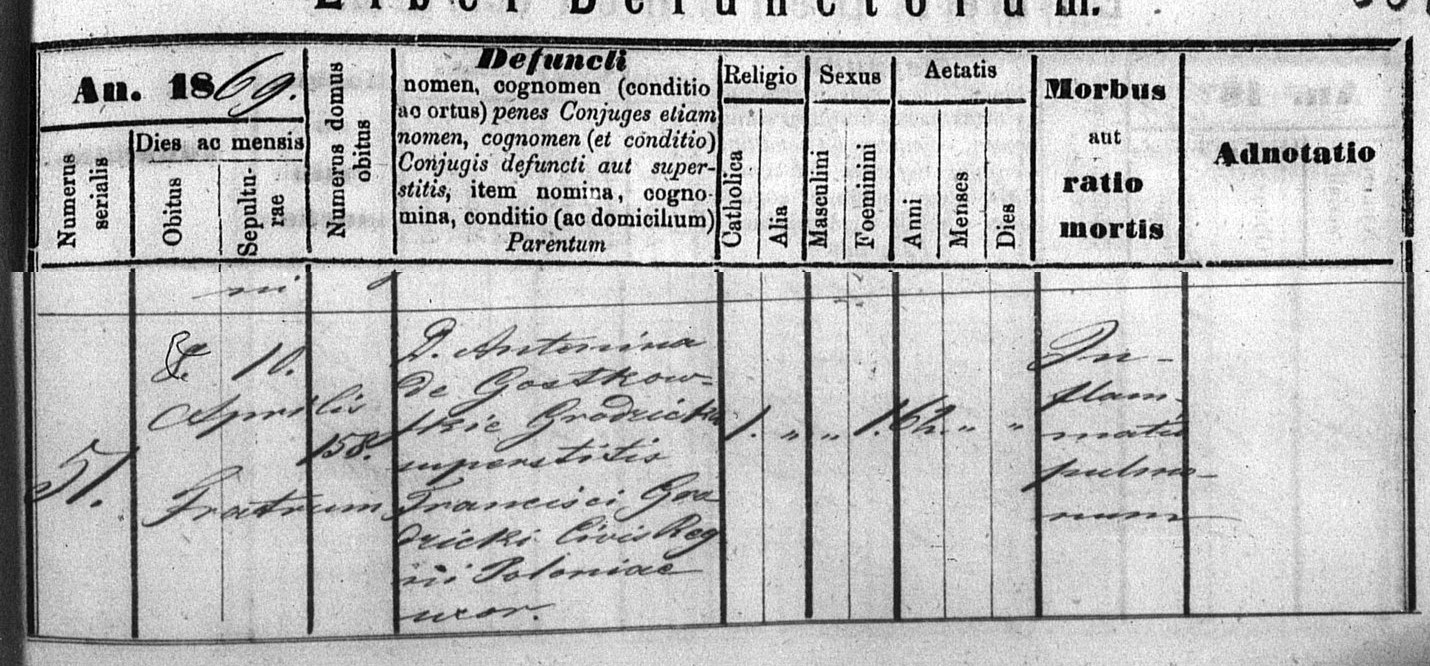 Liber Defunctorum.
An. 1869.
Numerus serialis
Dies ac mensis
Obitus
Sepultu-
rae
Numerus domus
obitus
Defuncti
nomen, cognomen (conditio
ac ortus) penes Conjuges etiam
nomen, cognomen (et conditio)
Conjugis defuncti aut super-
stitis, item nomina, cogno-
mina, conditio (ac domicilium)
Parentum
Religio
Catholica
Alia
Sexus
Masculini
Foeminini
Aetatis
Anni
Menses
Dies
Morbus
aut
ratio
mortis
Adnotatio
51.
8. 10.
Aprilis
Fratrum
158.
D. Antonina
de Gostkow-
skie Grodzicka
superstitis
Francisci Gro
dzicki Civis Reg
ni Poloniae
uxor.
1. „ „ 1. 62. „ „
In-
flam-
matio
pulmo-
num